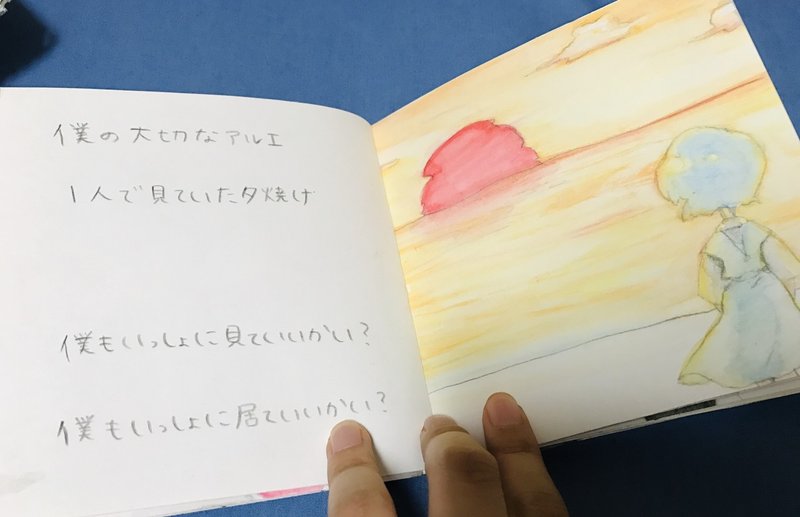 僕の大切なアルエ
1人で見ていた夕焼け
僕もいっしょに見ていいかい?
僕もいっしょに居ていいかい?